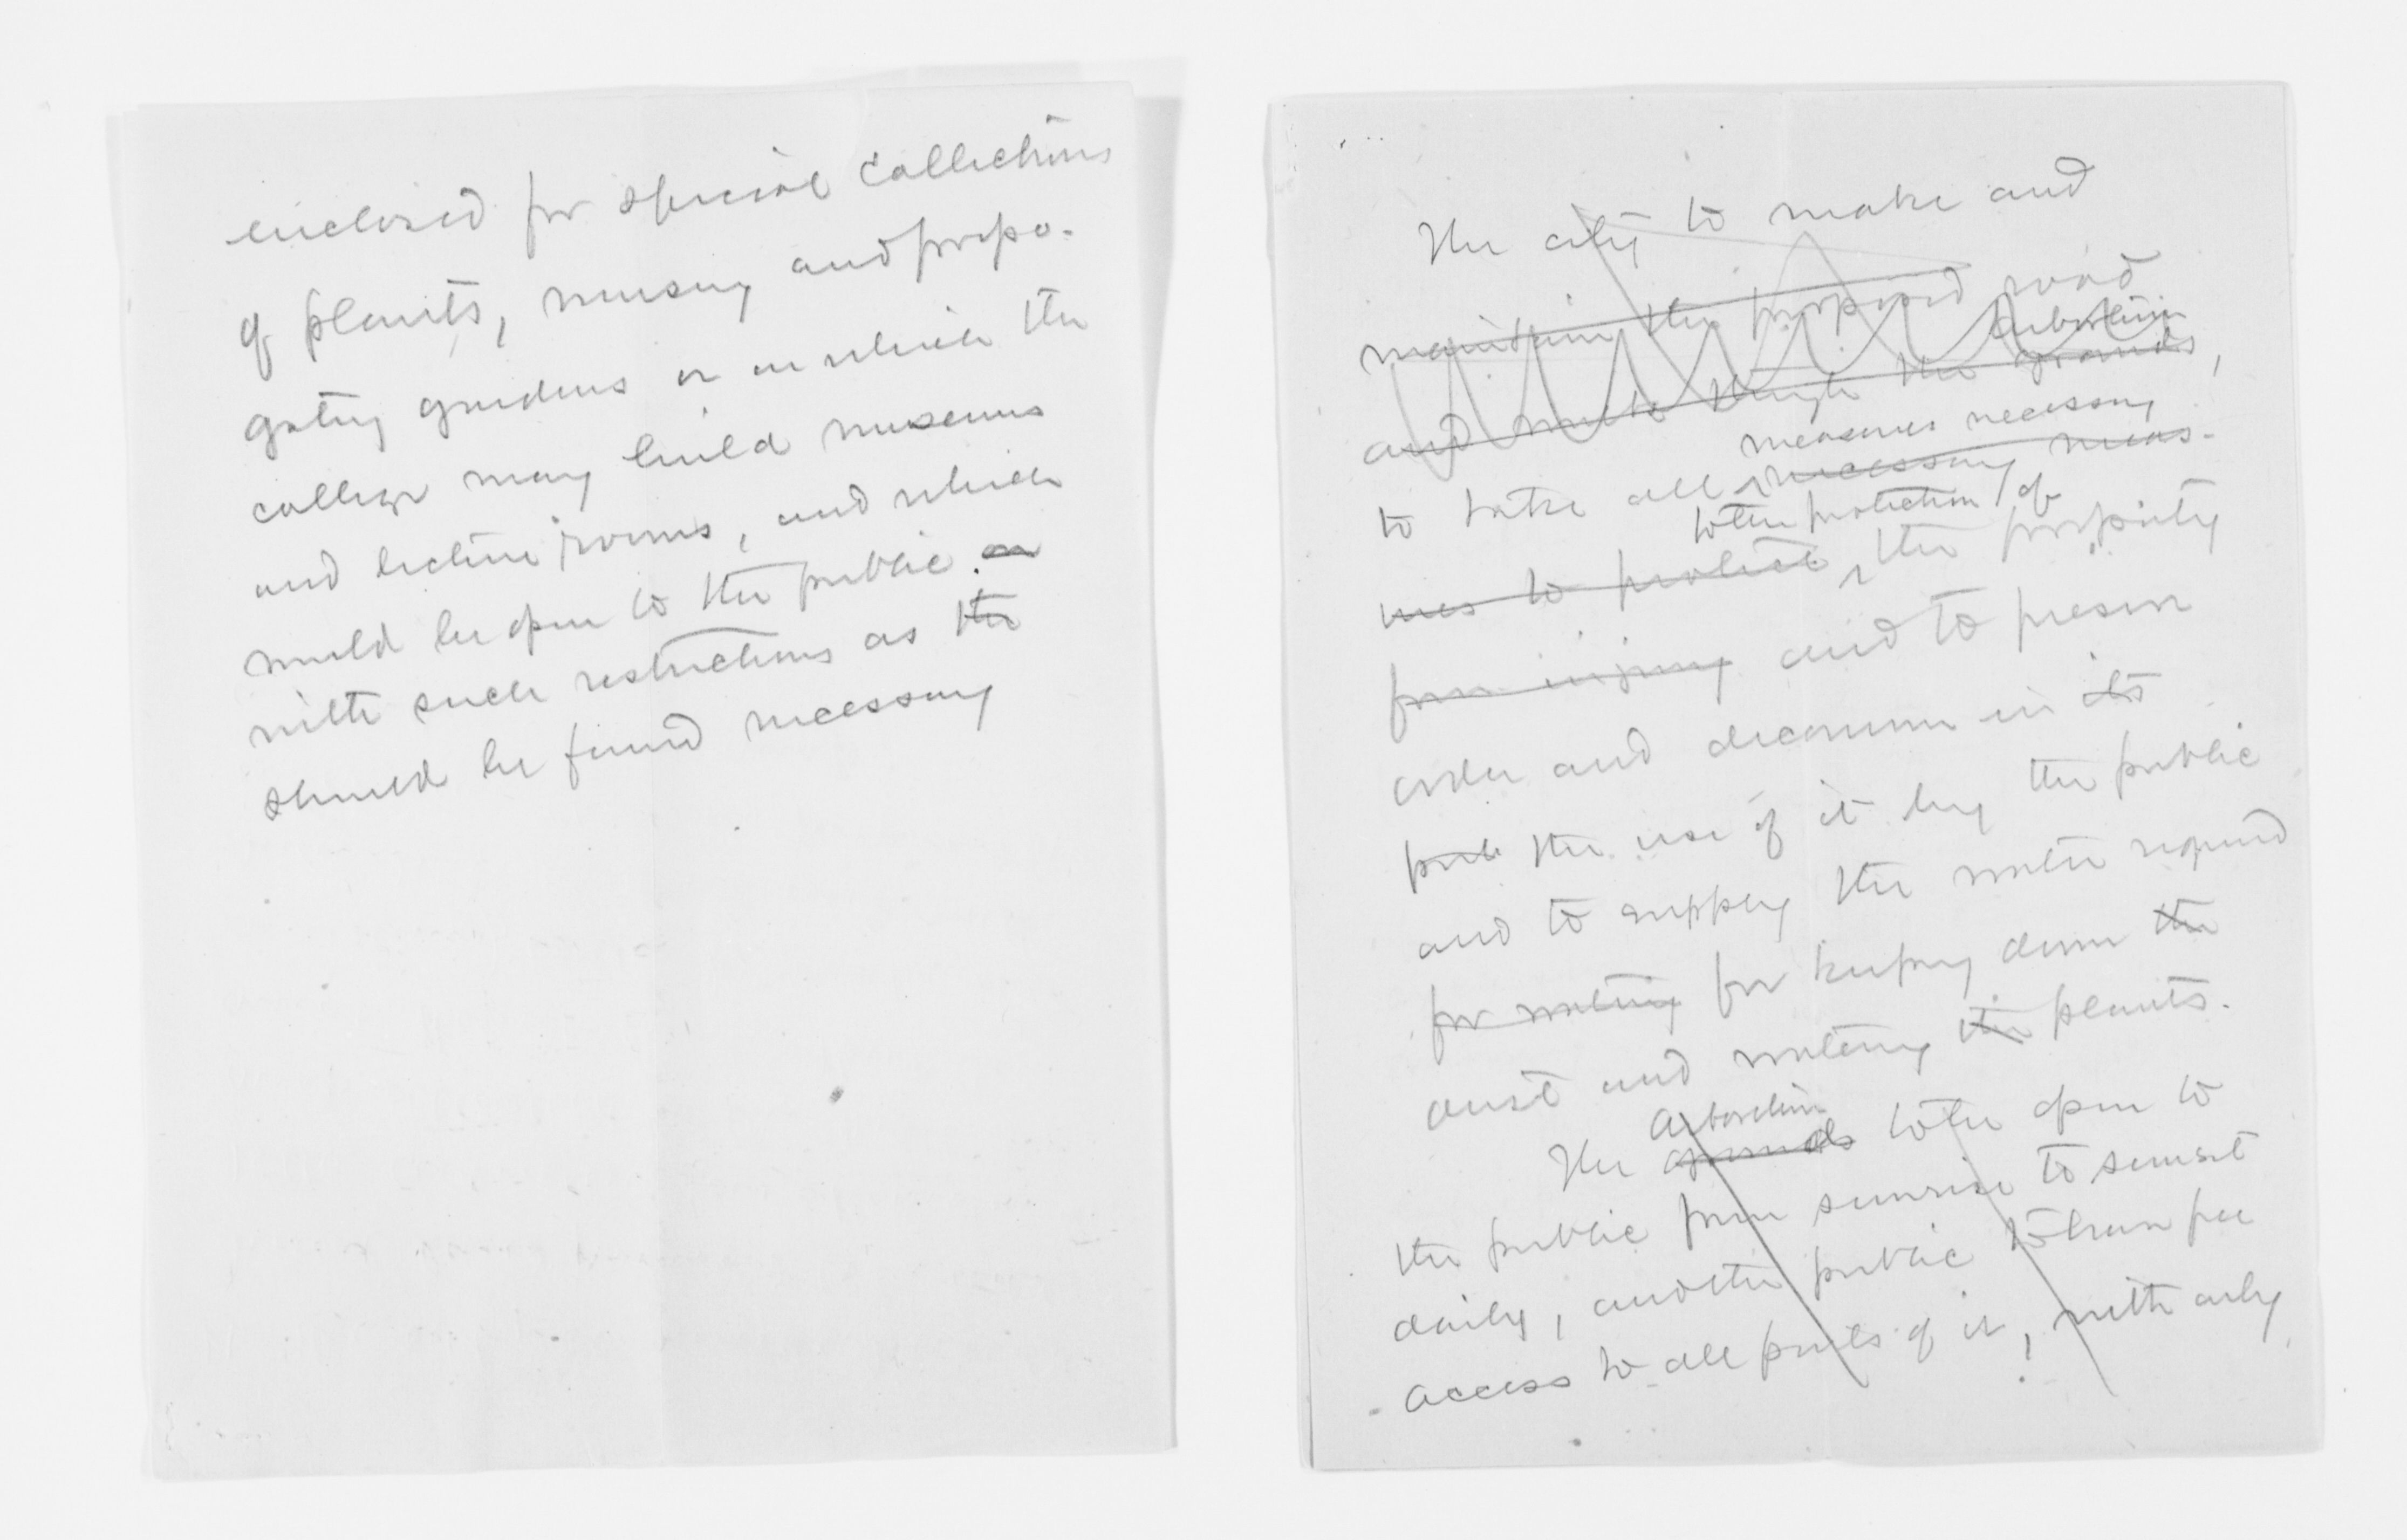 enclosed for special collections
of plants, nursery and propa-
gating gardens or on which the
college may build museums
and lecture rooms, and which
would be open to the public. on
with such restrictions as the
should be found necessary
The city to make and
maintain the proposed road
Arboretum
and walk through the grounds,
measures necessary
to take all necessary meas-
to the protection of
ures to protect the property
from injury and to preserve
order and decorum in its
pub the use of it by the public
and to supply the water required
for watering for keeping down the
dust and watering the plants.
Arboretum
The grounds to be open to
the public from sunrise to sunset
daily, and the public to have free
access to all parts of it, with only